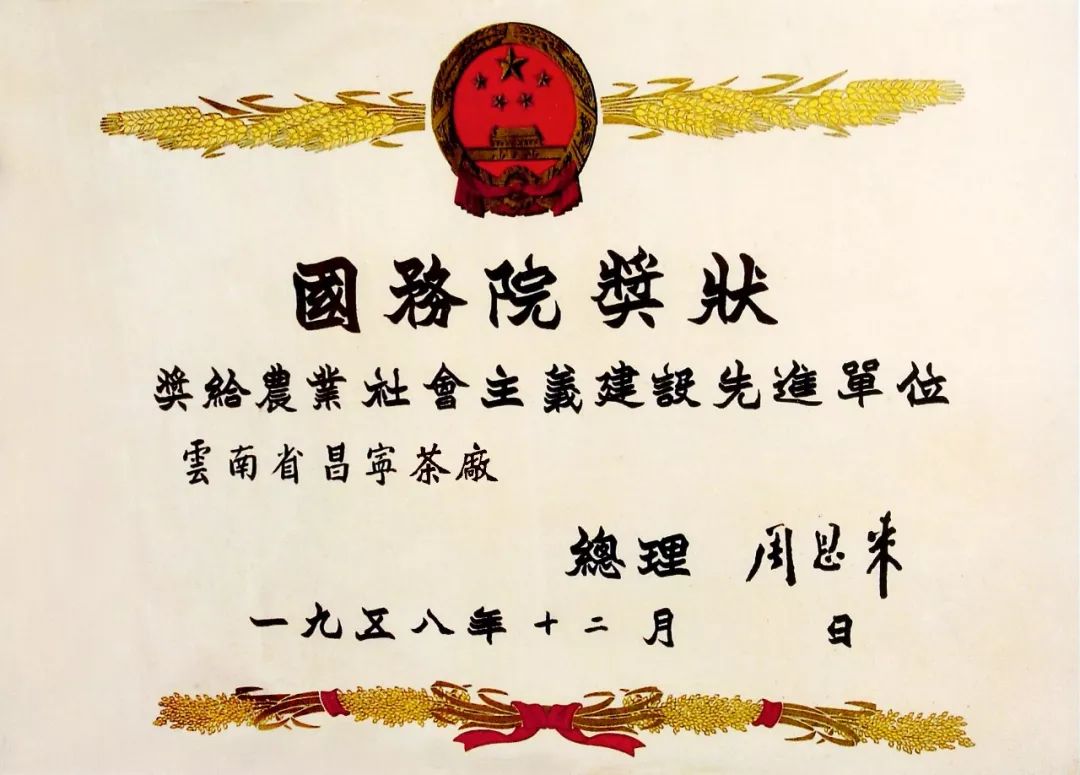 國務院獎狀
獎給農業社會主義建設先進單位
雲南省昌寧茶廠
總理 周恩来
一九五八年十二月 日